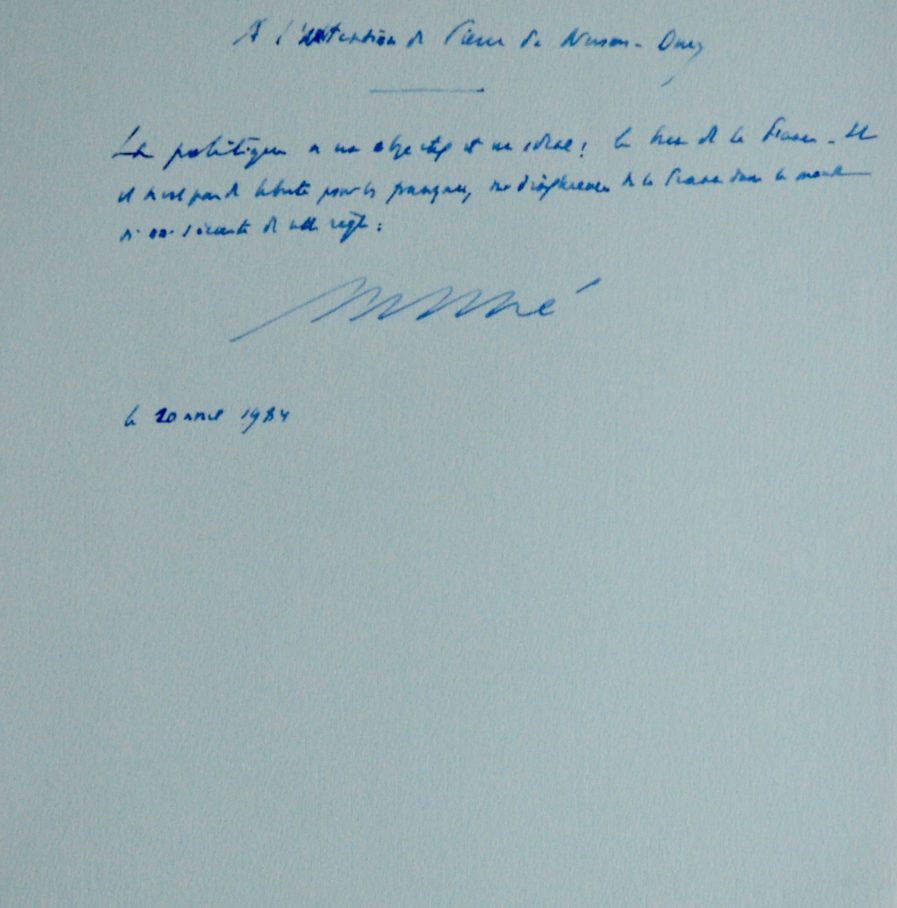 A l'attention de Pierre de
La politique a un objectif et un idéal : le bien de la France - Et
il n'est pas de liberté pour les français, ni d'influence de la France dans le monde
si on s'écarte de cette règle :
le 20 avril 1984